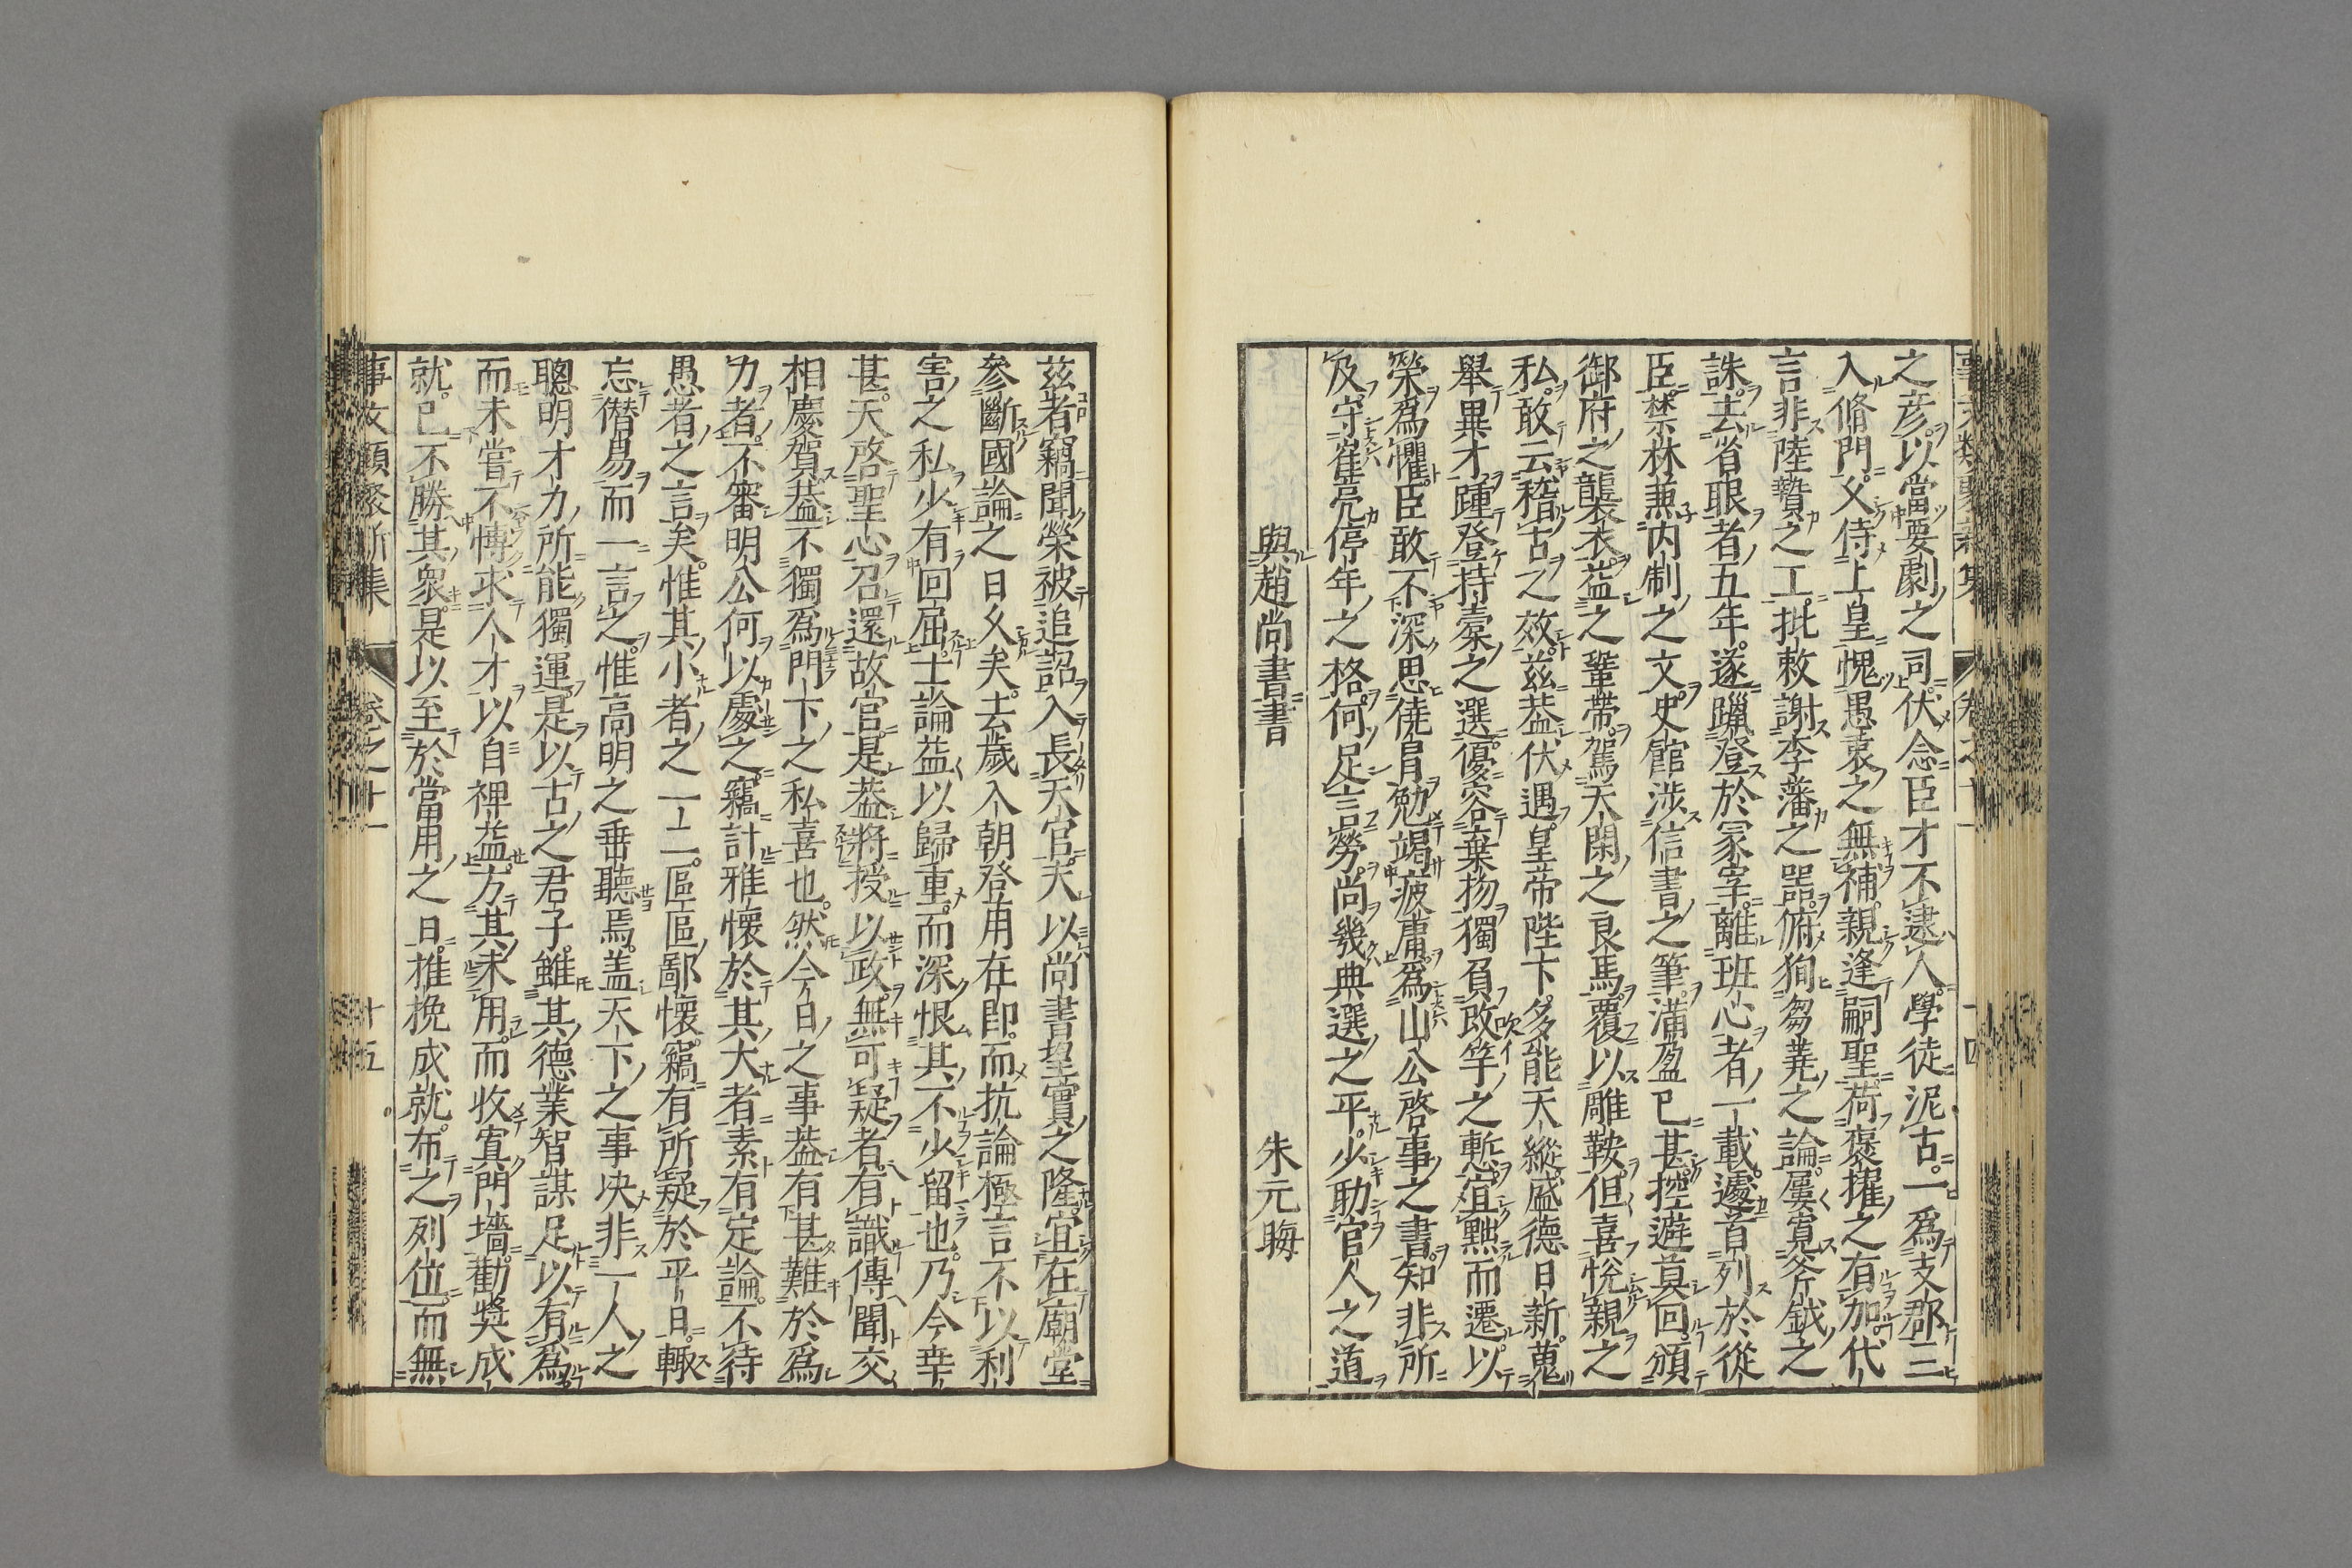 之彦以當要劇之司伏念臣才不逮人學徒泥古一爲支郡三
入脩門父侍上皇愧愚衷之無補親逢嗣聖荷褒擢之有加代
言非陸贄之工批敕謝李藩之器俯狥芻蕘之論屢寬斧鉞之
誅去省眼者五年遂躐登於冢宰離班心者一載遽首列於從
臣禁林兼内制之文史館涉信書之筆滿盈已甚控避莫回頒
御府之襲衣益之鞶帶駕天閑之良馬覆以雕鞍但喜悅親之
私敢云稽古之效茲葢伏遇皇帝陛下多能天縱盛德日新蒐
舉畢才踵登持槖之選優容棄物獨負吹竽之慙宜黜而遷以
榮爲懼臣敢不深思僥冐勉竭疲庸爲山公啓事之書知非所
及守崔亮停年之格何足言勞尚幾典選之平少助官人之道
與趙尚書書 朱元晦
茲者竊聞榮被追詔入長天官夫以尚書望實之隆宜在廟堂
參斷國論之日乆矣去歲入朝登用在即而抗論極言不以利
害之私少有回屈士論益以歸重而深恨其不少留也乃今幸
甚天啓聖心召還故官是葢將授以政無可疑者有識傳聞交
相慶賀葢不獨爲門下之私喜也然今日之事葢有甚難於爲
力者不審明公何以處之竊計雅懷於其大者素有定論不待
愚者之言矣惟其小者之一二區區鄙懷竊有所疑於平日輙
忘僭易而一言之惟高明之垂聽焉盖天下之事决非一人之
聰明才力所能獨運是以古之君子雖其德業智謀足以有爲
而未甞不愽求人才以自裨益方其未用而收寘門墻勸奬成
就已不勝其衆是以至於當用之日推挽成就布之列位而無
事文類聚新集 卷之十一 十五